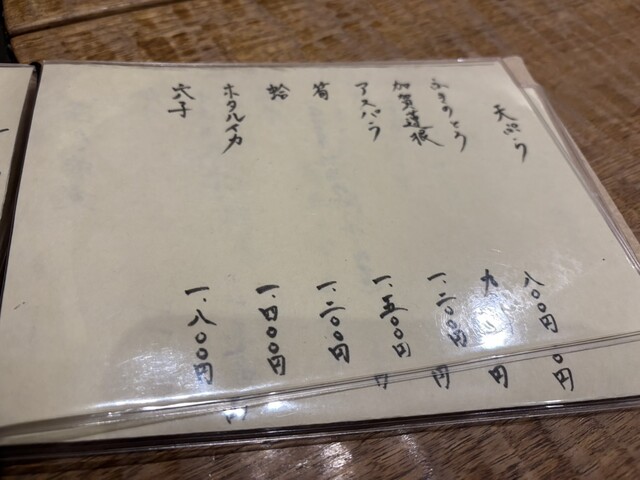 天ぷら
ふきのとう 八〇〇円
加賀蓮根 九
アスパラ 一、二〇〇円
筍 一、五〇〇円
蛤 一、二〇〇円
ホタルイカ 一、四〇〇円
穴子 一、八〇〇円